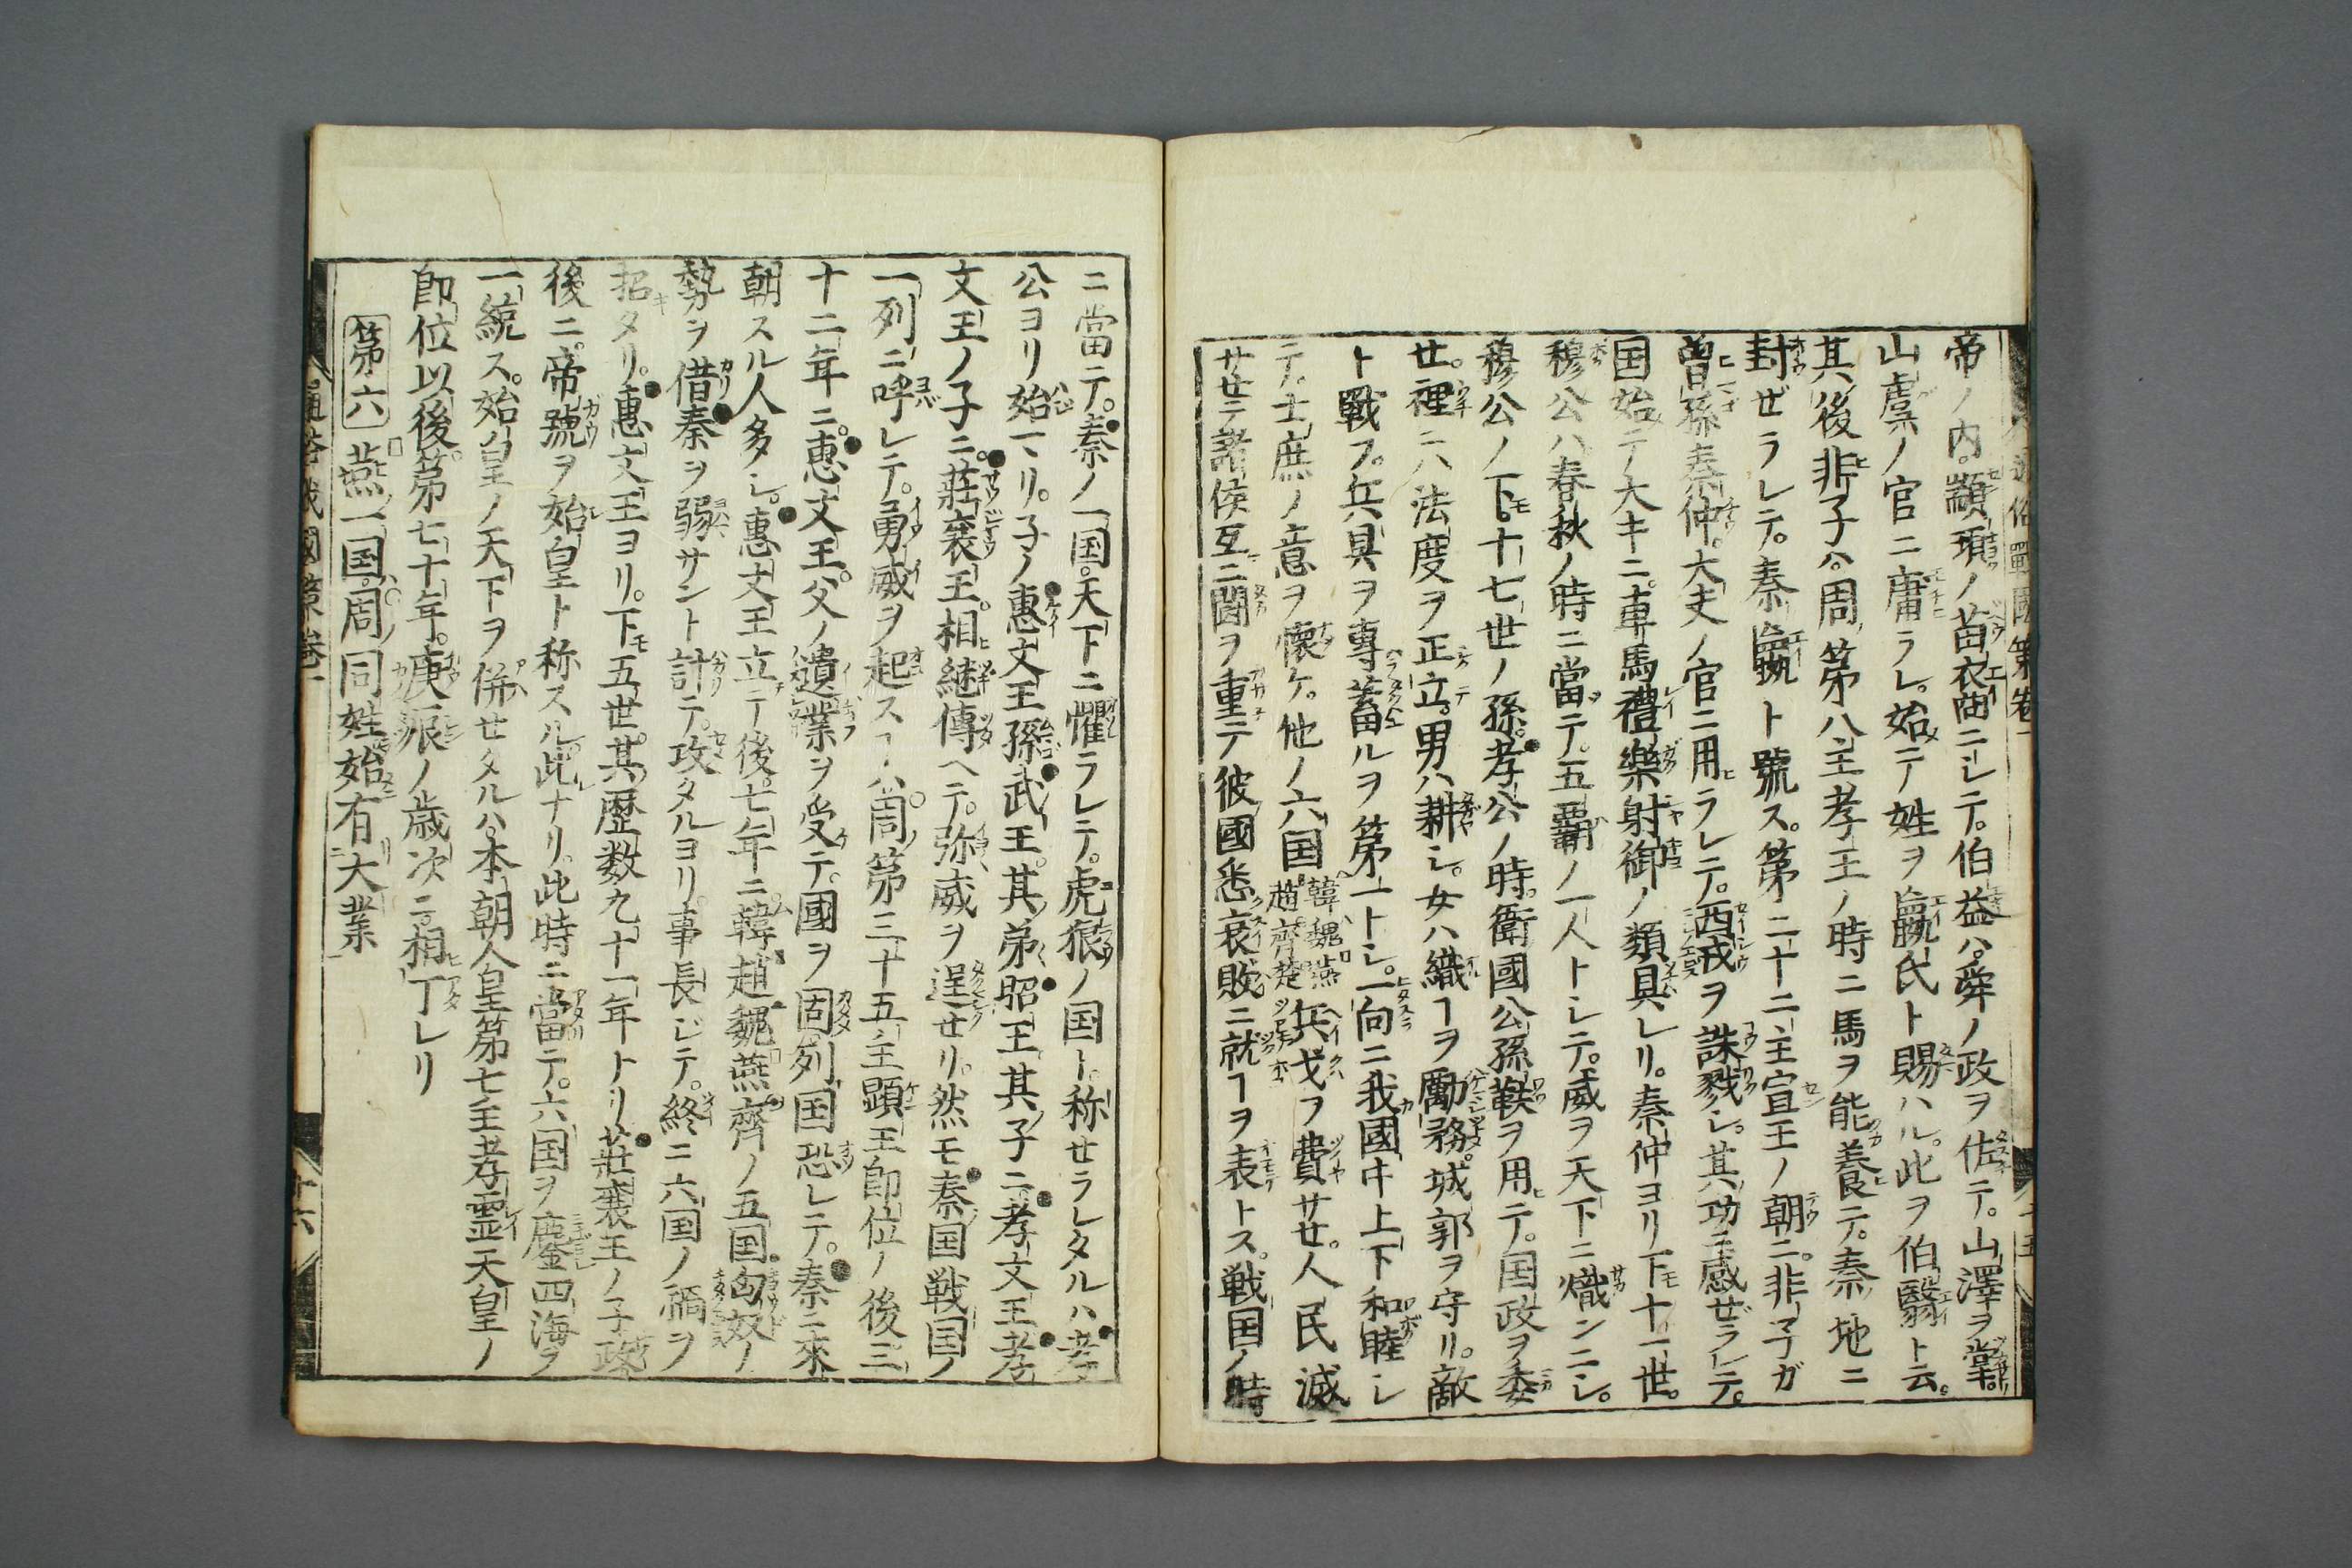 帝ノ内。顓頊ノ苗裔ニシテ。伯益ハ。舜ノ政ヲ佐テ。山澤ヲ掌。
山虞ノ官ニ庸ラレ。始テ姓ヲ嬴氏ト賜ハル。此ヲ伯翳ト云。
其後非子ハ。周第八主孝王ノ時ニ馬ヲ能養テ。秦ノ地ニ
封ゼラレテ。秦嬴ト號ス。第二十二主宣王ノ朝ニ。非子ガ
曽孫秦仲。大夫ノ官ニ用ラレテ。西戎ヲ誅戮シ。其功ニ感ゼラレテ。
国始テ大キニ。車馬禮樂射御ノ類具レリ。秦仲ヨリ下十一世。
穆公ハ春秋ノ時ニ當テ。五覇ノ一人トシテ。威ヲ天下ニ熾ンニシ。
穆公ノ下。十七世ノ孫。孝公ノ時。衛國公孫鞅ヲ用テ。国政ヲ委
せ。裡ニハ法度ヲ正立。男ハ耕シ。女ハ織ヿヲ勵務。城郭ヲ守リ。敵
ト戰フ。兵具ヲ專蓄ルヲ第一トシ。一向ニ我國中上下和睦シ
テ。士庶ノ意ヲ懐ケ。他ノ六国韓魏燕趙齊楚兵戈ヲ費サせ。人民滅
サせテ諸侯互ニ鬪ヲ重テ彼國悉衰敗ニ就ヿヲ表トス。戦国ノ時
ニ當テ。秦ノ一国。天下ニ懼ラレテ。虎狼ノ国ト。称せラレタルハ孝
公ヨリ始マリ。子ノ惠文王孫武王。其弟昭王其子ニ孝文王孝
文王ノ子ニ。莊襄王。相継傳ヘテ。弥威ヲ逞せリ。然モ秦国戦国ノ
一列ニ呼レテ。勇威ヲ起スヿハ周第三十五主顕王即位ノ後三
十二年ニ。惠文王。父ノ遺業ヲ受テ。國ヲ固。列国恐レテ。秦ニ來
朝スル人多シ。惠文王立テ後。七年ニ。韓趙魏燕齊ノ五国。匈奴ノ
勢ヲ借秦ヲ弱サント計テ。攻タルヨリ。事長ジテ。終ニ六国ノ禍ヲ
招タリ。惠文王ヨリ。下五世。其歴数九十一年トリ莊襄王ノ子政
後ニ。帝號ヲ始皇ト称スル此ナリ。此時ニ當テ。六国ヲ鏖四海ヲ
一統ス。始皇ノ天下ヲ併せタルハ。本朝人皇第七主孝靈天皇ノ
即位以後。第七十年。庚辰ノ歳次ニ相丁レリ
第六 燕一国。周ノ同姓始有大業